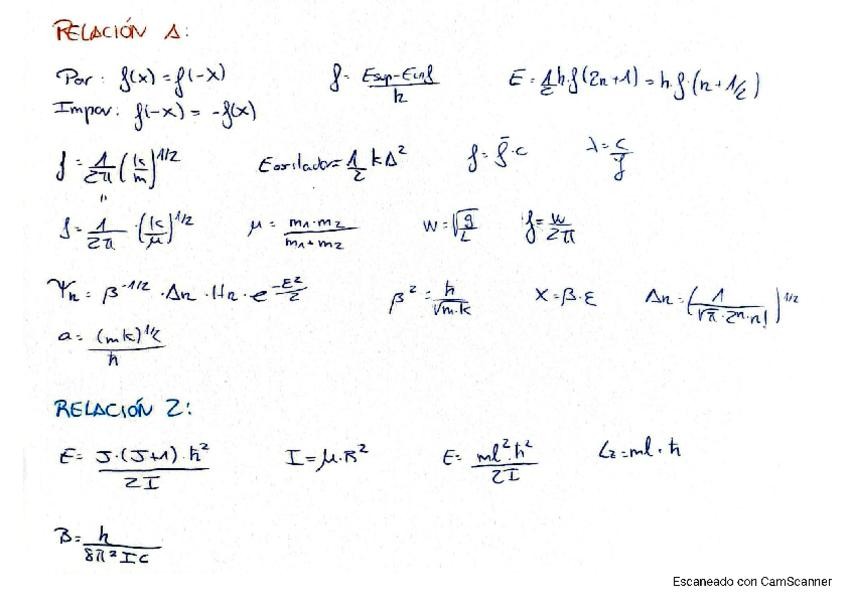 RELACIÓN 1:
Par: f(x) = f(-x)    f = (Esup-Einf)/h    E = 1/2 h·f(2n+1) = h·f·(n+1/2)
Impar: f(-x) = -f(x)
f = 1/2π (k/m)^1/2    Eoscilador = 1/2 kA²    f = f̄·c    λ = c/f
"
f = 1/2π · (k/μ)^1/2    μ = (m1·m2)/(m1+m2)    w = √(g/L)    f = w/2π
Ψn = β^-1/2 · An · Hn · e^(-ε²/2)    β² = ħ/√(m·k)    x = β·ε    An = (1/(√π·2ⁿ·n!))^1/2
a = (mk)^1/2/ħ
RELACIÓN 2:
E = J·(J+1)·ħ²/2I    I = μ·R²    E = ml²·ħ²/2I    Lz = ml·ħ
B = h/8π²Ic
Escaneado con CamScanner